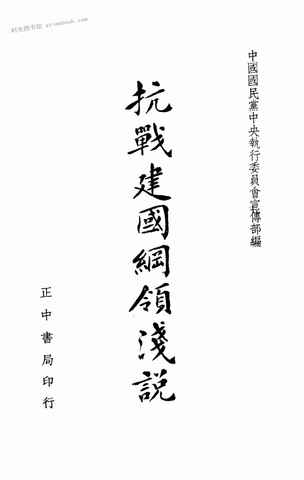 中國國民黨中央執行委員會宣傳部編
抗戰建國綱領淺説
正中書局印行